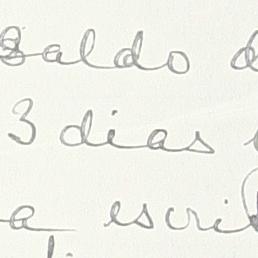 saldo d
3 dias
a escri